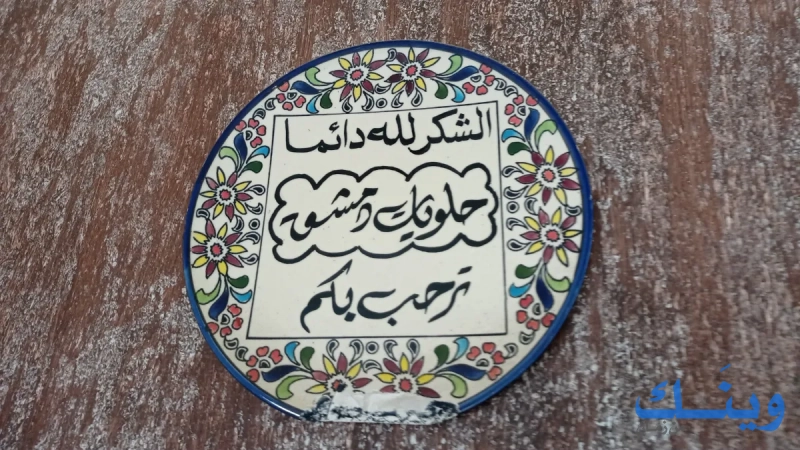 الشكر لله دائما
حلويات دمشق
ترحب بكم
وينَـك